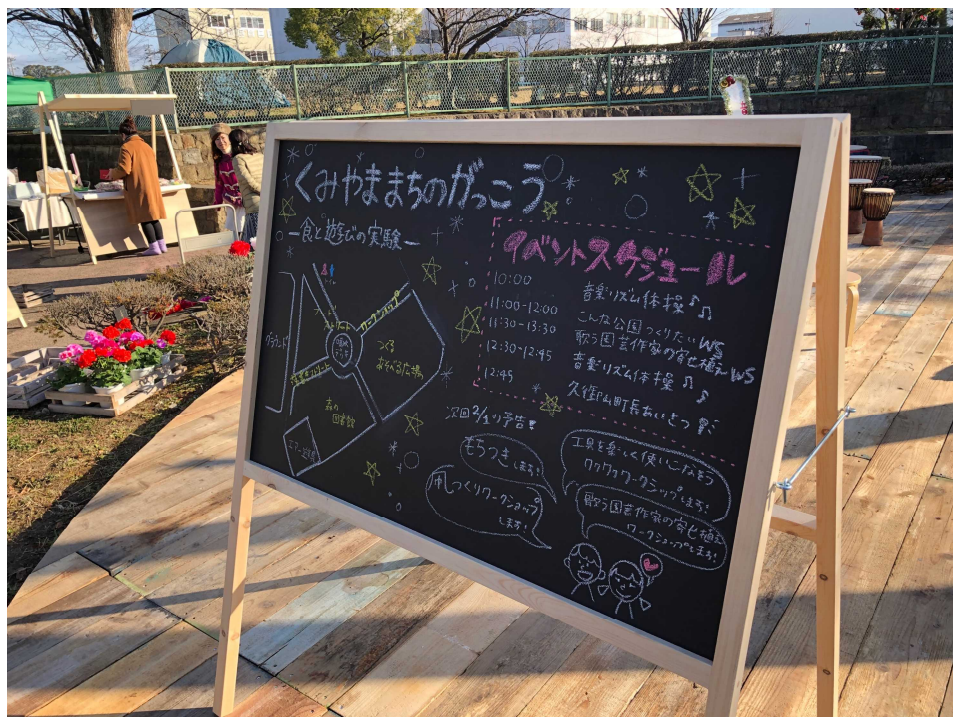 くみやままちのがっこう
ー食と遊びの実験ー
イベントスケジュール
10:00 音楽リズム体操♪♪
11:00-12:00 こんな公園つくりたいWS
11:30-13:30 歌う園芸作家の寄せ植えWS
12:30-12:45 音楽リズム体操♪♪
12:45 久御山町長あいさつ
グラウンド
つくる
あそべる広場
森の
図書館
次回2/1の予告!
もちつきします!
凧づくりワークショップ
します!
工具を楽しく使いこなそう
ワクワクワークショップします!
歌う園芸作家の寄せ植え
ワークショップします!